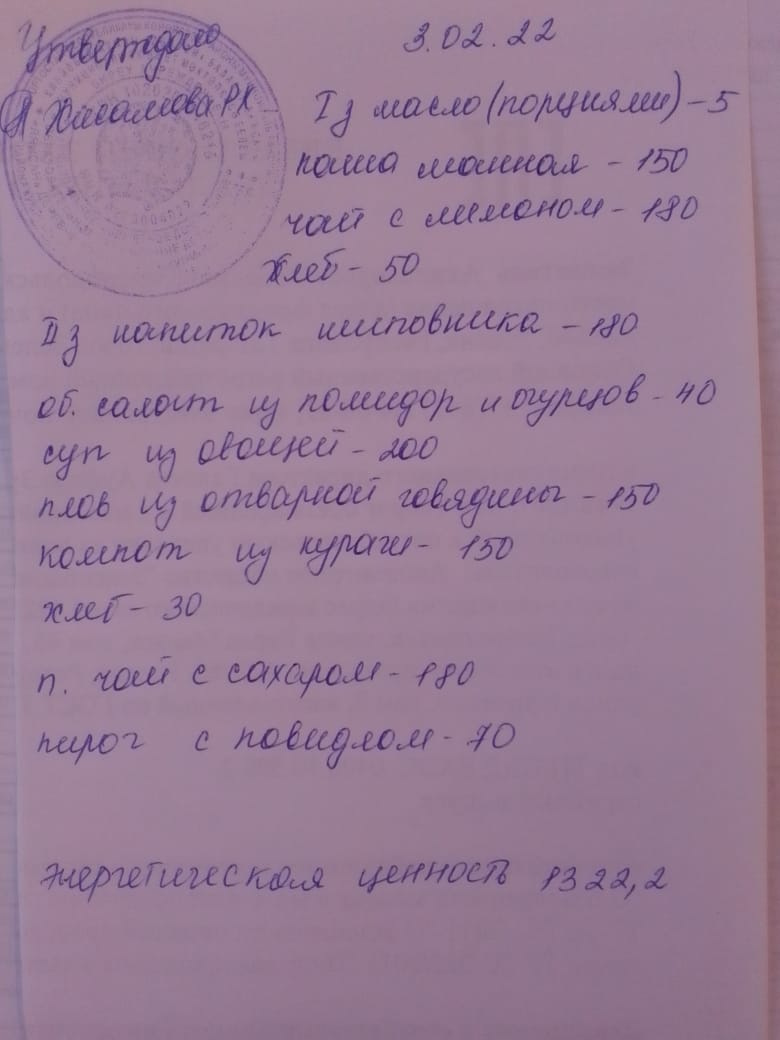 Утверждаю
3.02.22
Хисамова РХ
I з масло (порциями) - 5
каша манная - 150
чай с лимоном - 180
Хлеб - 50
II з напиток шиповника - 180
об. салат из помидор и огурцов - 40
суп из овощей - 200
плов из отварной говядины - 150
компот из кураги - 150
хлеб - 30
п. чай с сахаром - 180
пирог с повидлом - 70
энергетическая ценность 1322,2